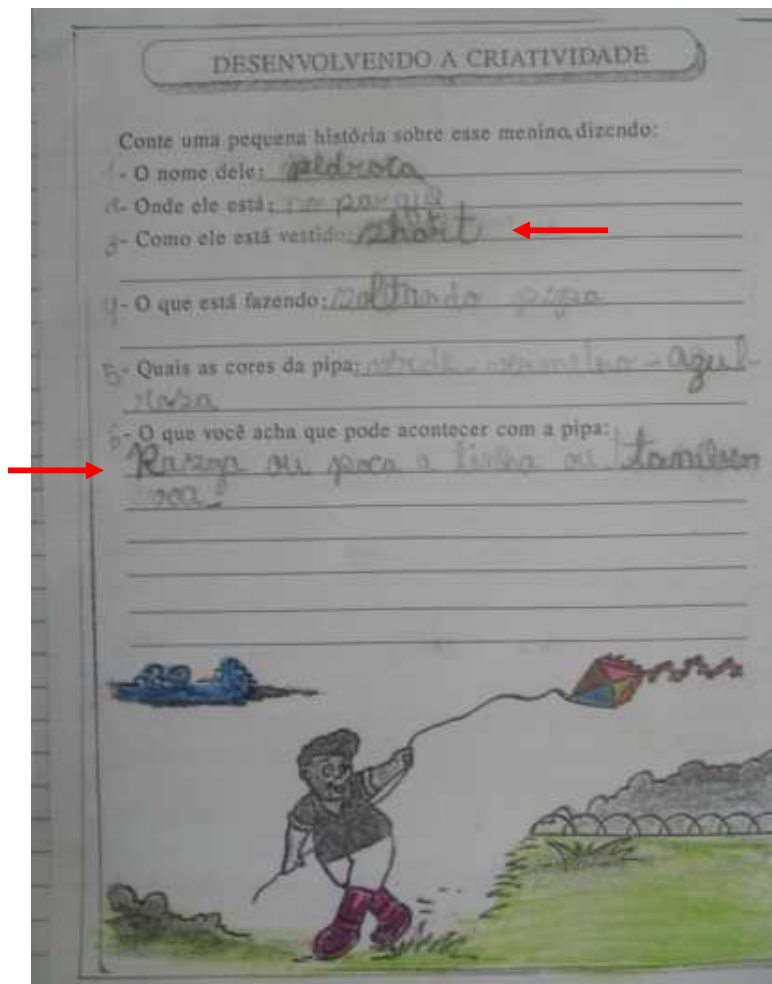 DESENVOLVENDO A CRIATIVIDADE
Conte uma pequena história sobre esse menino, dizendo:
1- O nome dele: pedroca
2- Onde ele está: no parque
3- Como ele está vestido: short
4- O que está fazendo: soltando pipa
5- Quais as cores da pipa: verde - vermelho - azul -
rosa
6- O que você acha que pode acontecer com a pipa:
Razga ou poca a linha ou tamilsen
voa